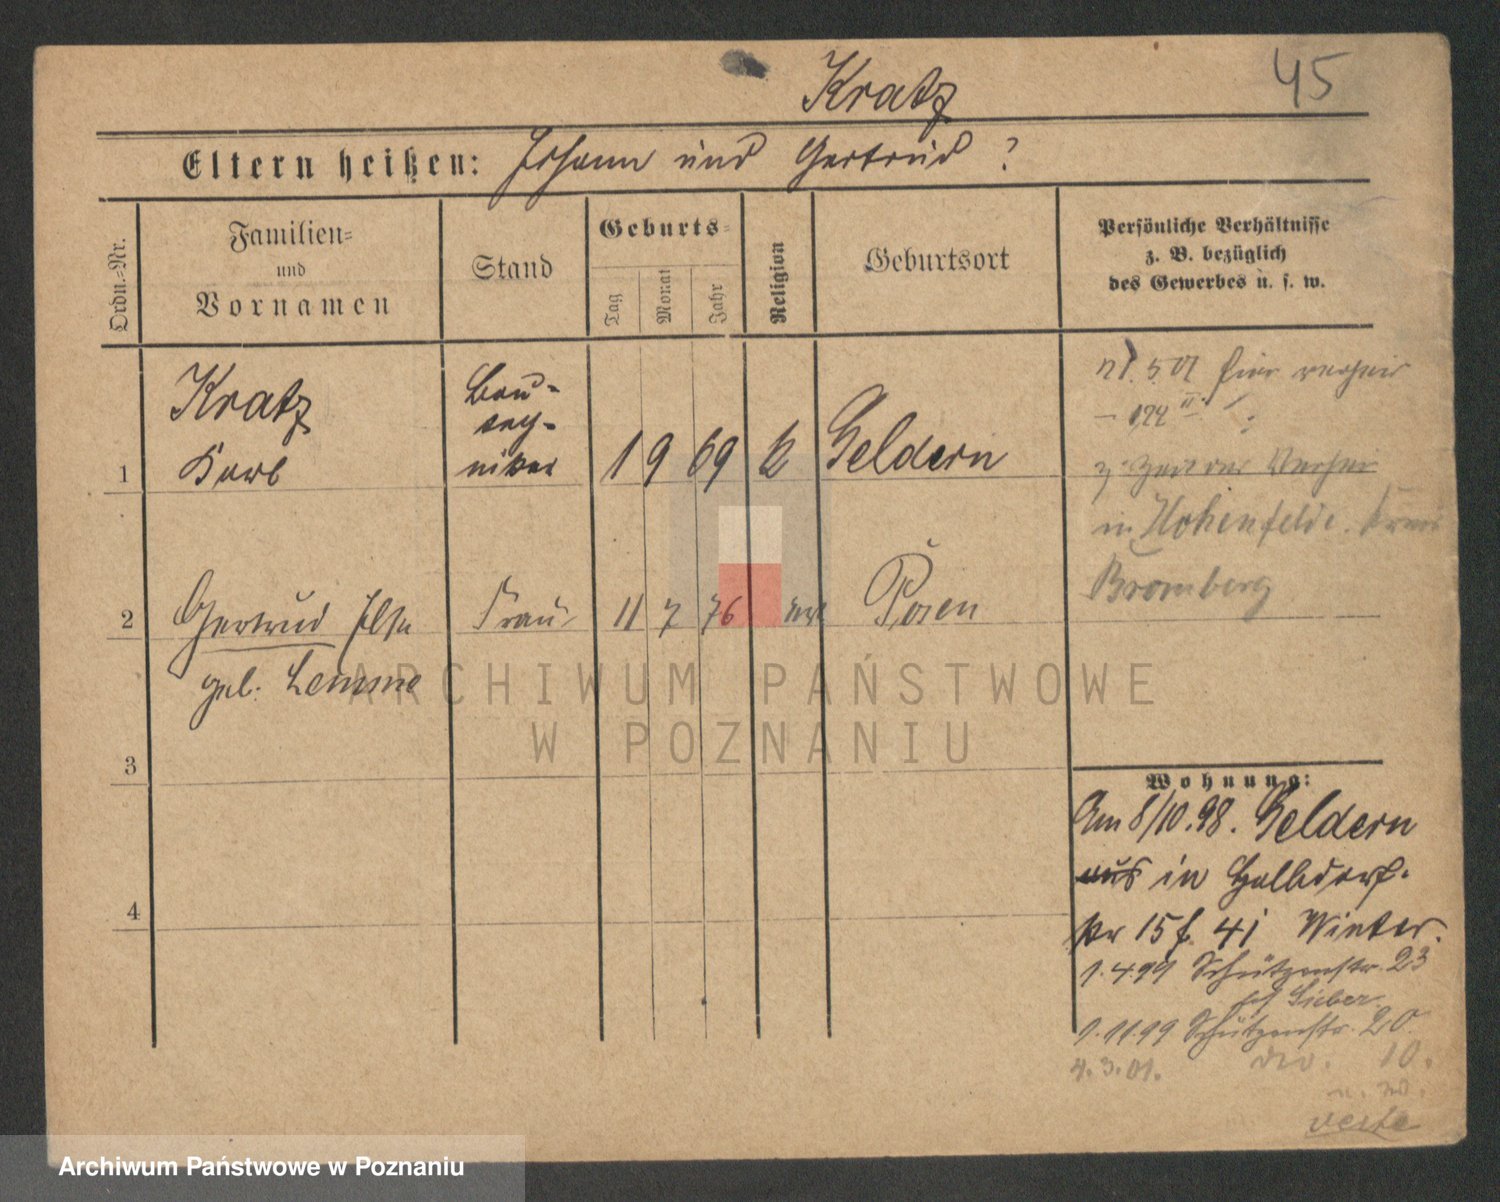 45
Kratz
Eltern heißen: Johann und Gertrud ?
Ordn.-Nr.
Familien-
und
Vornamen
Stand
Geburts-
Tag
Monat
Jahr
Religion
Geburtsort
Persönliche Verhältnisse
z. B. bezüglich
des Gewerbes u. s. w.
Kratz
Karl
Bau-
tech-
niker
1 9 69 k Geldern
1
in Hohenfelde. Kreis
Bromberg
2 Gertrud Else Frau 11 7 76 Posen
geb. Lemme
3
4
Wohnung:
Am 8/10.98. Geldern
aus in Halbdorf-
str 15 f. 41 Winter.
1.4.99 Schützenstr. 23
bei Sieber.
1.11.99 Schützenstr. 20.
4.3.01. 10.
verte
ARCHIWUM PAŃSTWOWE
W POZNANIU
Archiwum Państwowe w Poznaniu